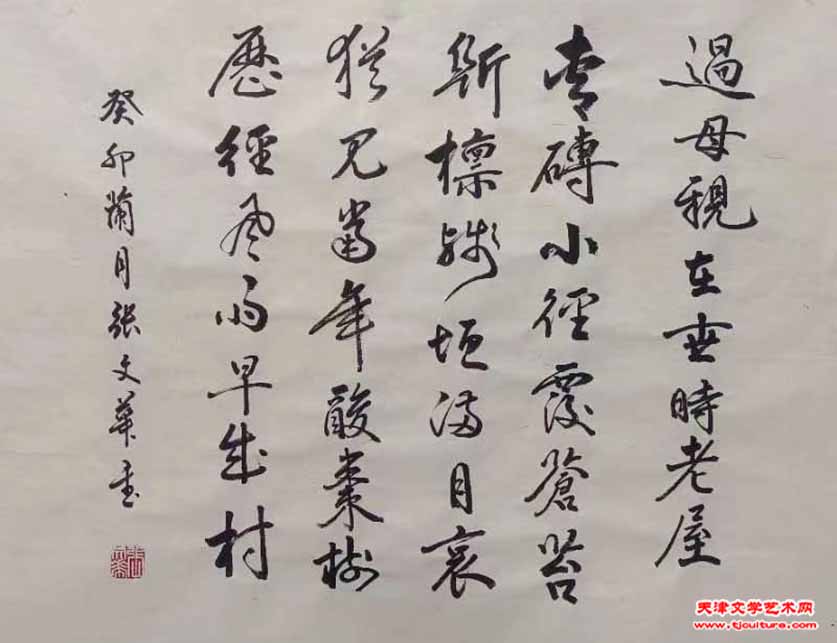 過母親在世時老屋
青磚小徑覆蒼苔
斷檁殘垣滿目哀
猶見當年酸棗樹
歷經風雨早成材
癸卯蘭月張文華書
天津文学艺术网
www.tjculture.com